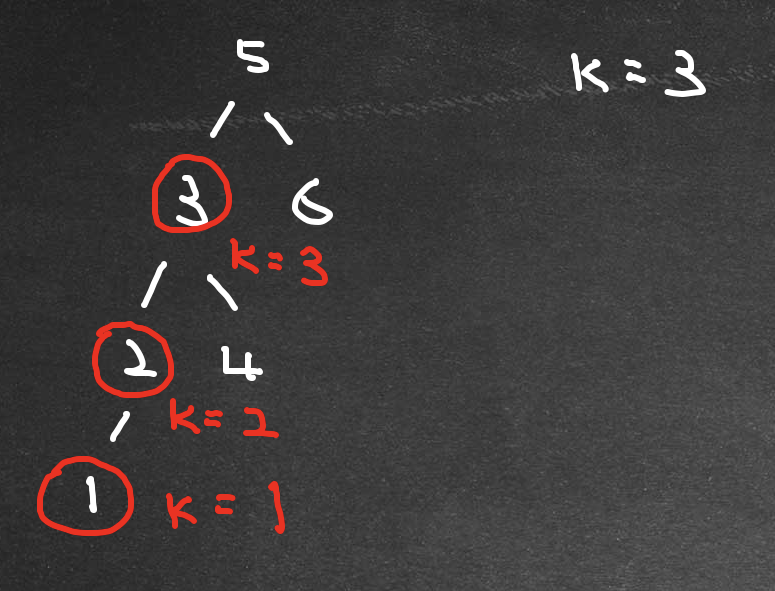 5
K = 3
3
6
K = 3
2
4
K = 2
1
K = 1